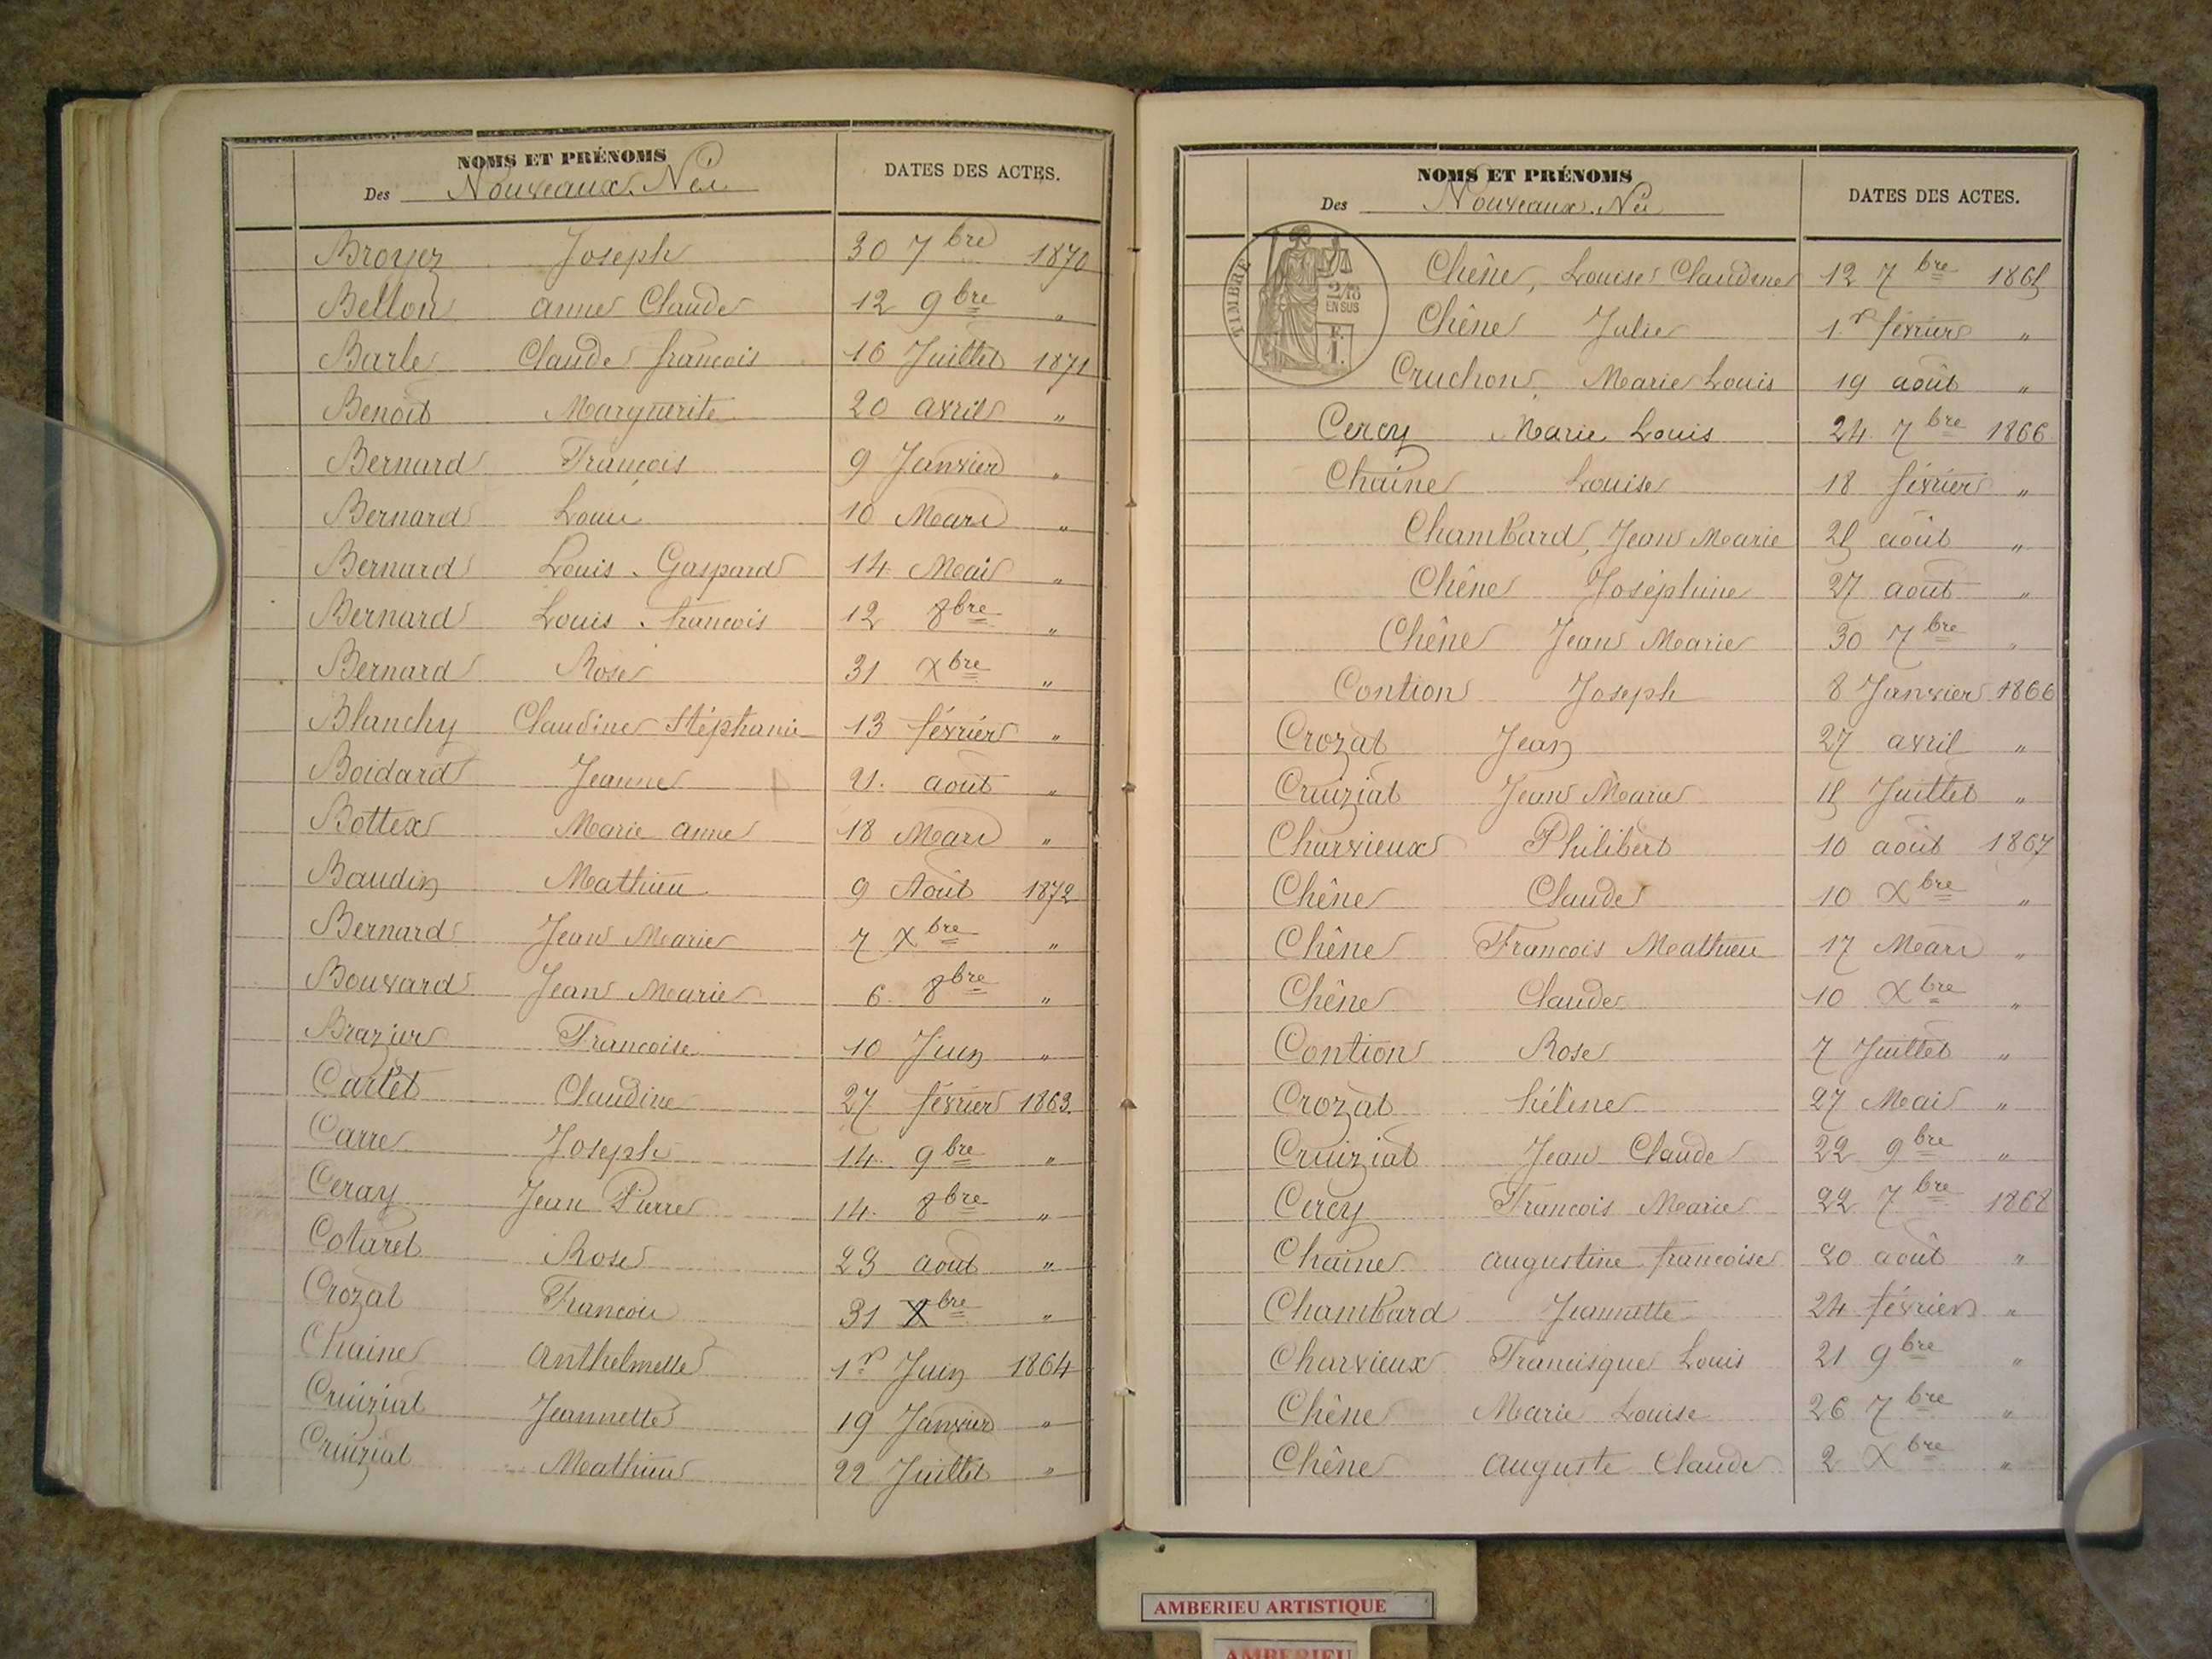 NOMS ET PRÉNOMS
Des Nouveaux-Nés
DATES DES ACTES.
Broyer Joseph 30 7bre 1870
Bellon Anne Claude 12 9bre "
Barle Claude François 16 Juillet 1871
Benoit Marguerite 20 avril "
Bernard François 9 Janvier "
Bernard Louis 10 Mars "
Bernard Louis Gaspard 14 Mai "
Bernard Louis François 12 8bre "
Bernard Rose 31 Xbre "
Blanchy Claudine Stéphanie 13 février "
Boidard Jeanne 21 août "
Bottex Marie anne 18 Mars "
Baudin Mathieu 9 Août 1872
Bernard Jean Marie 7 Xbre "
Bouvard Jean Marie 6 8bre "
Brazier Françoise 10 Juin "
Cartet Claudine 27 février 1863
Carre Joseph 14 9bre "
Jean Pierre 14 8bre "
Cotaret Rose 23 août "
Crozat 31 Xbre "
Chaine Anthelmette 1er Juin 1864
Cruiziat Jeannette 19 Janvier "
Cruiziat Mathieu 22 Juillet "
NOMS ET PRÉNOMS
Des Nouveaux-Nés
DATES DES ACTES.
TIMBRE
2/10 EN SUS
F.
1.
Chêne, Louise Claudine 12 7bre 1865
Chêne Julie 1er février "
Cruchon, Marie Louis 19 août "
Cercy Marie Louis 24 7bre 1866
Chaine Louise 18 février "
Chambard, Jean Marie 25 août "
Chêne Joséphine 27 août "
Chêne Jean Marie 30 7bre "
Contion Joseph 8 Janvier 1866
Crozat Jean 27 avril "
Cruiziat Jean Marie 15 Juillet "
Charvieux Philibert 10 août 1867
Chêne Claude 10 Xbre "
Chêne François Mathieu 17 Mars "
Chêne Claude 10 Xbre "
Contion Rose 7 Juillet "
Crozat hélène 27 Mai "
Cruiziat Jean Claude 22 9bre "
Cercy François Marie 22 7bre 1868
Chaine augustine françoise 20 août "
Chambard Jeannette 24 février "
Charvieux Francisque Louis 21 9bre "
Chêne Marie Louise 26 7bre "
Chêne Auguste Claude 2 Xbre "
AMBERIEU ARTISTIQUE
AMBERIEU